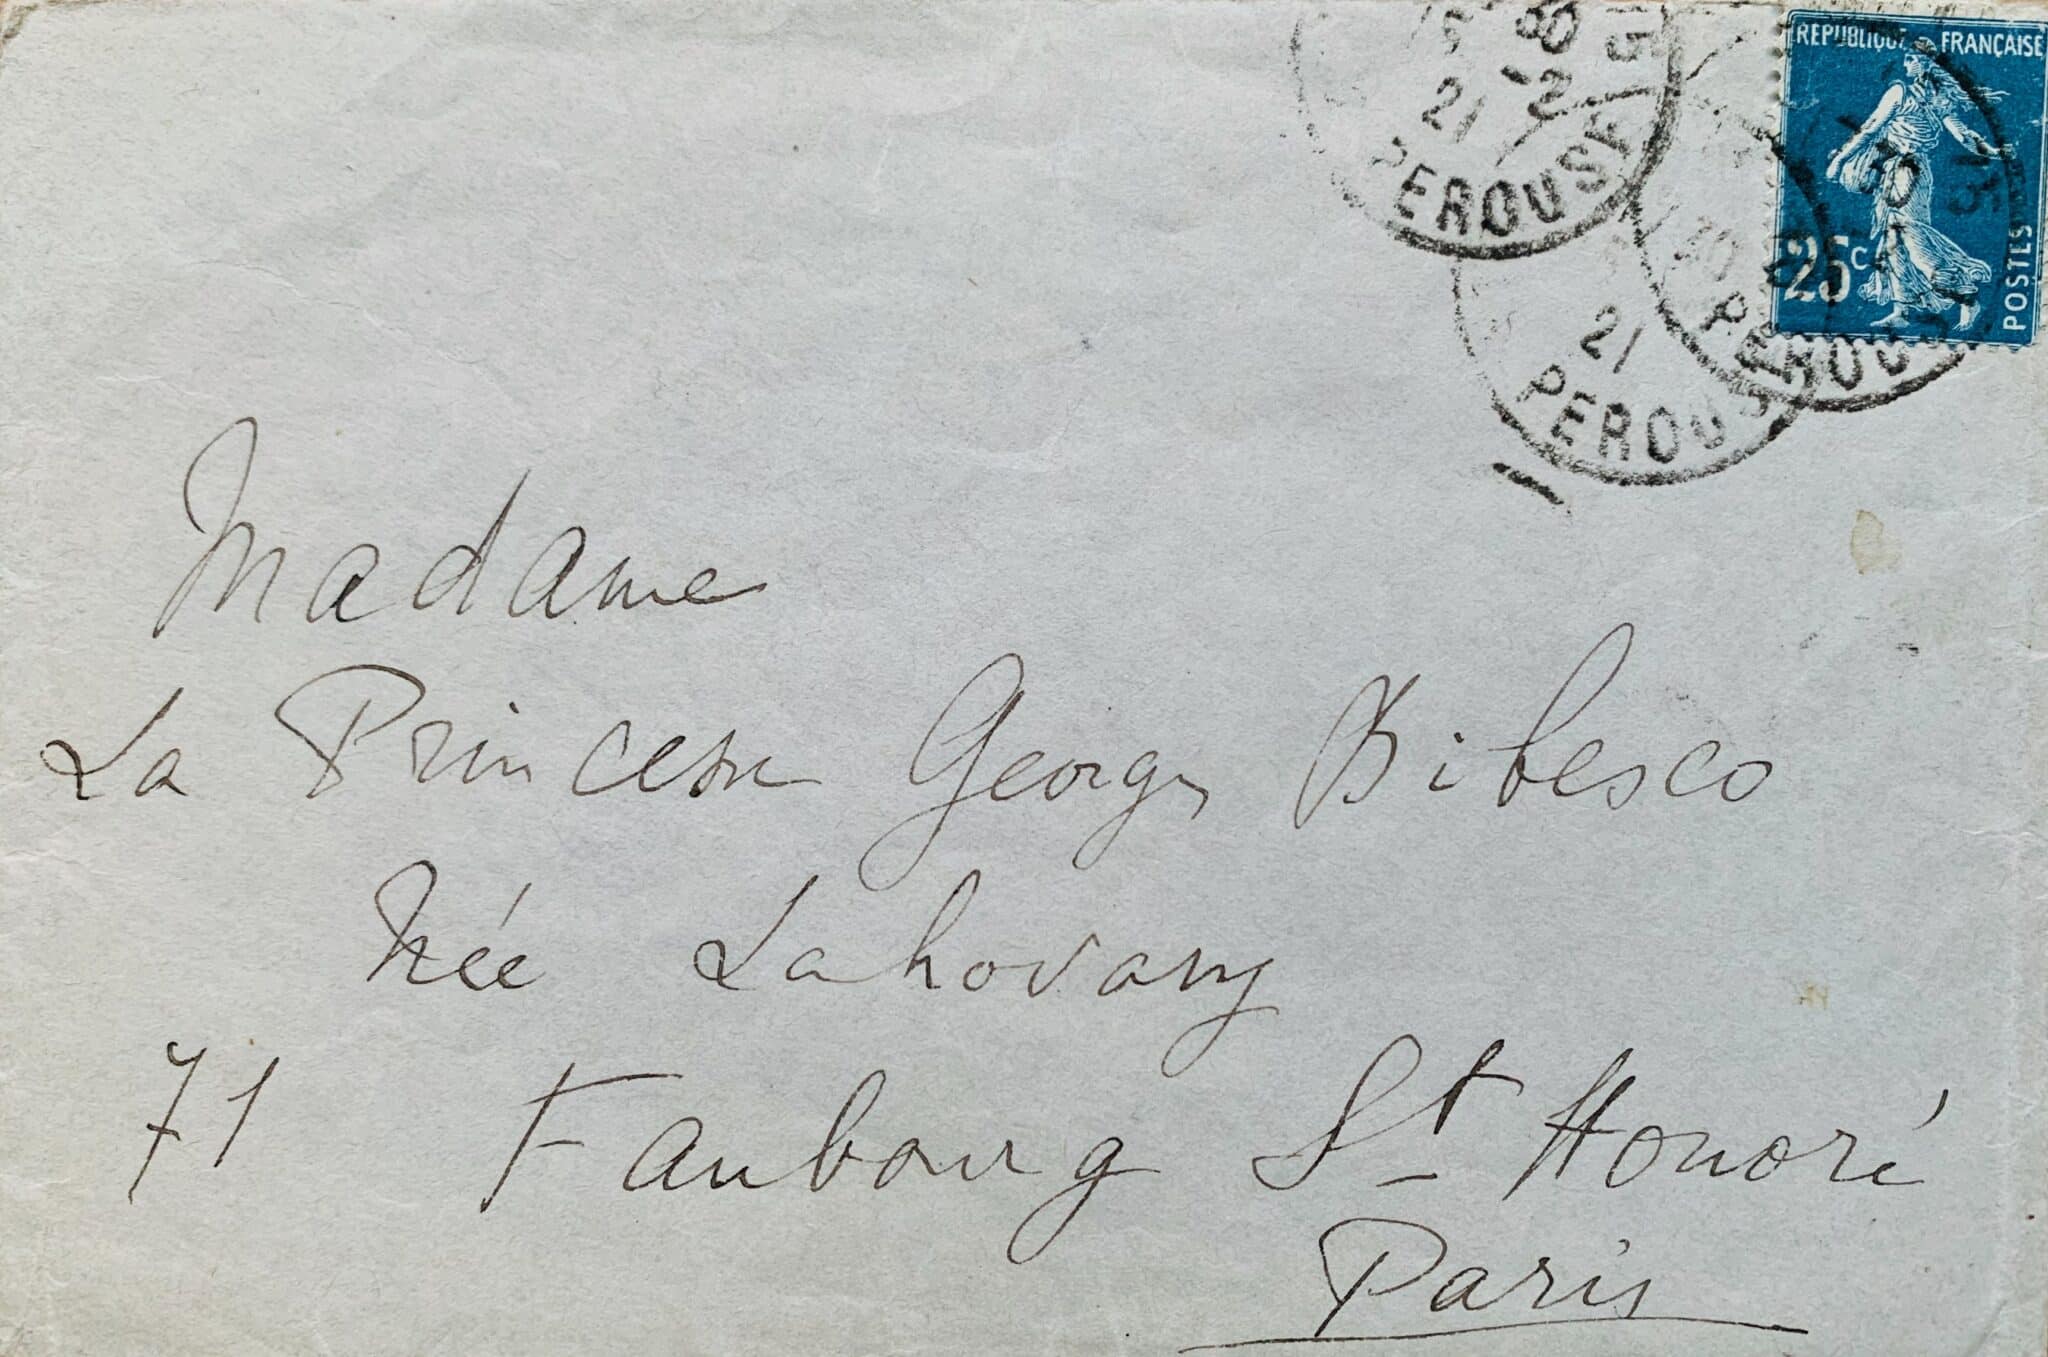 RÉPUBLIQUE FRANÇAISE
25c
POSTES
21
PEROUSE
21
PEROUS
PEROUS
Madame
La Princesse George Bibesco
Née Lahovary
71 Faubourg St Honoré
Paris